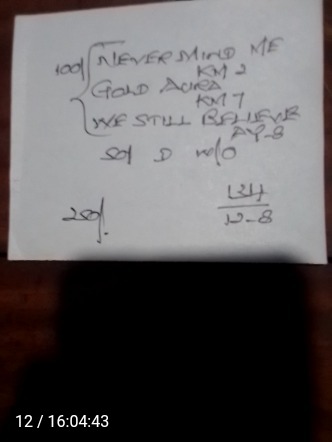 100/ { NEVER MIND ME
KM 2
GOLD AURA
KM 7
WE STILL BELIEVE
AY-8
50/ D W/O
250/.
12-8
12 / 16:04:43